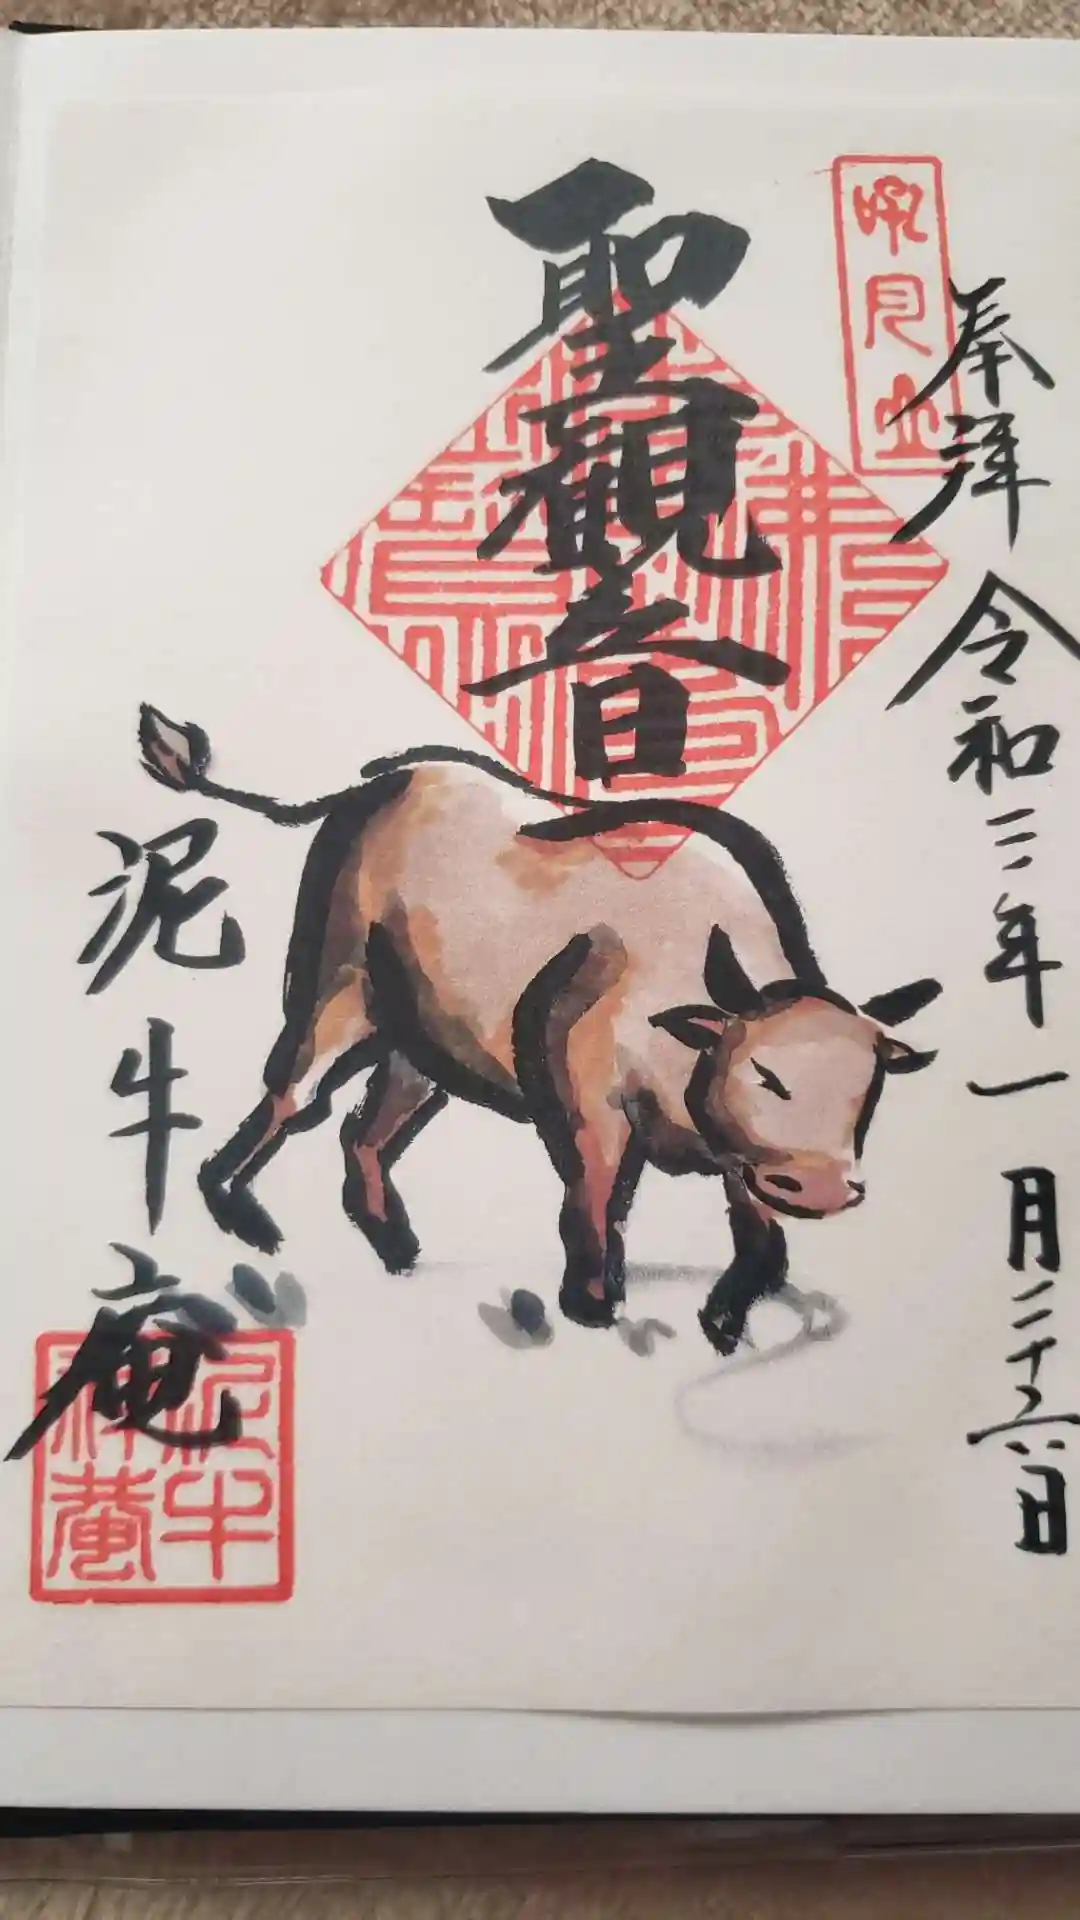 奉拝 令和三年一月二十六日
聖観音
泥牛庵
吼月山
泥牛禅庵